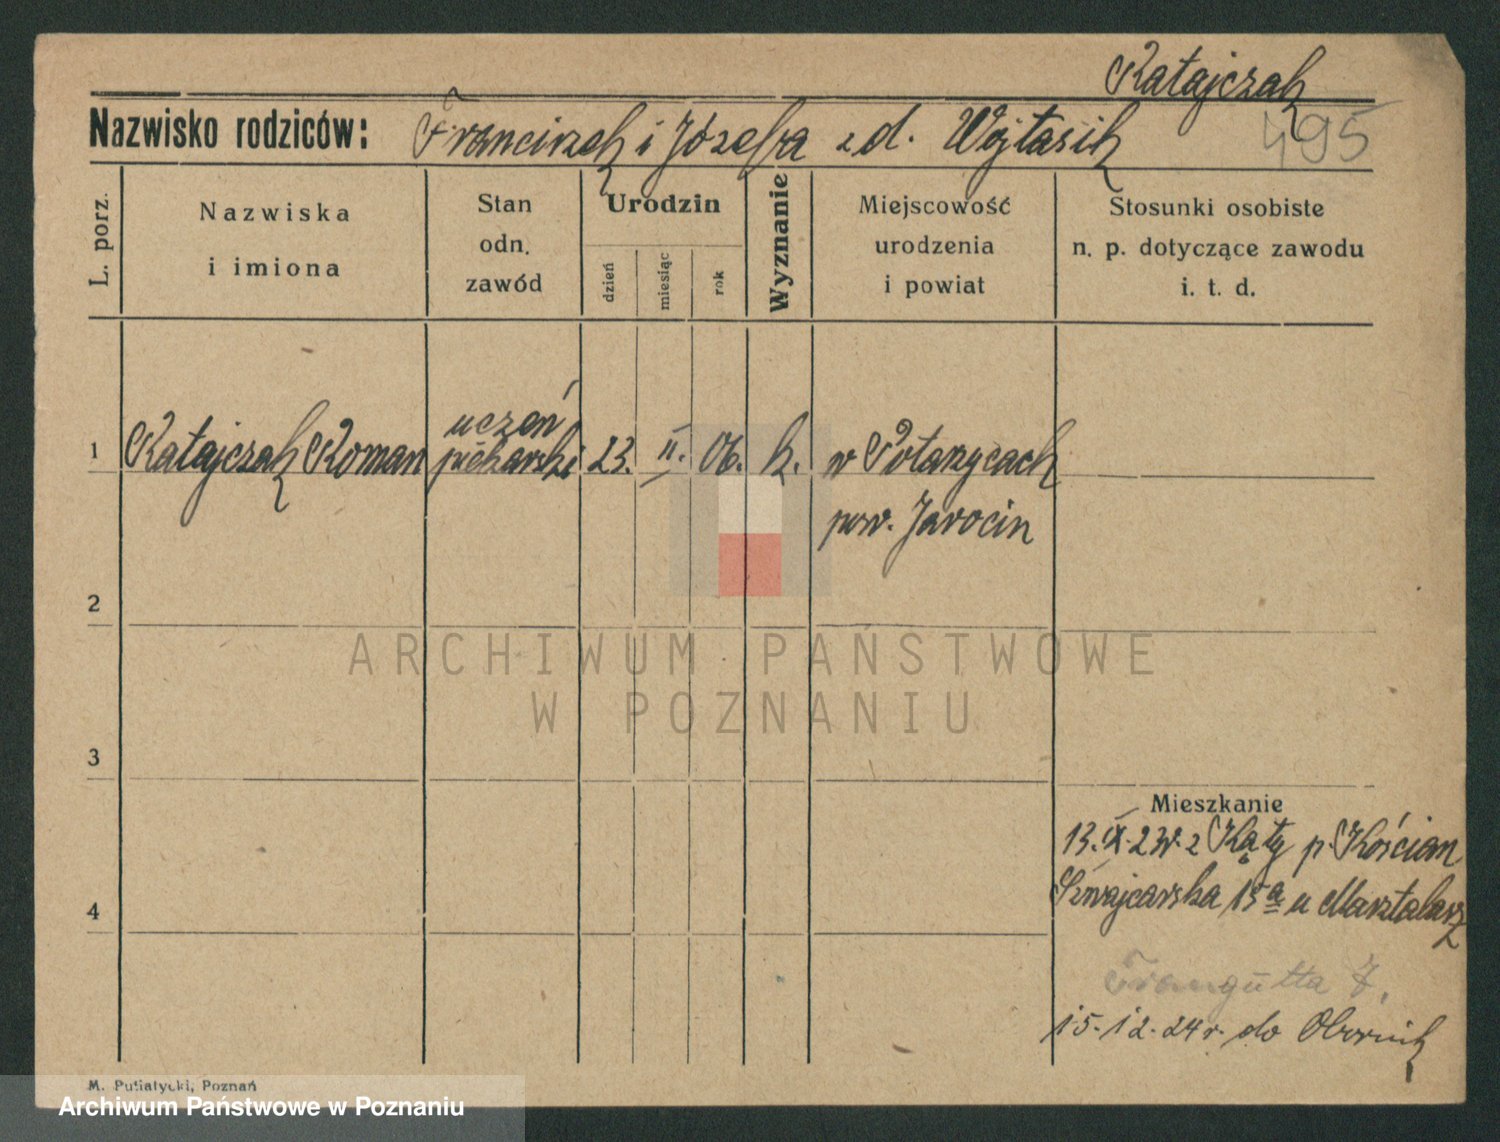 Ratajczak
495
Nazwisko rodziców: Franciszek i Józefa z d. Wojtasik
L. porz.
Nazwiska
i imiona
Stan
odn.
zawód
Urodzin
dzień
miesiąc
rok
Wyznanie
Miejscowość
urodzenia
i powiat
Stosunki osobiste
n. p. dotyczące zawodu
i. t. d.
uczeń
1 Ratajczak Roman piekarski 23. II. 06. k. w Potarzycach
pow. Jarocin
2
3
4
ARCHIWUM PAŃSTWOWE
W POZNANIU
Mieszkanie
13.IX.23r. z Kąty p. Kościan
Szwajcarska 15a u Marsztalarz
Traugutta 7.
15.12.24 r. do Obornik
M. Putiatycki, Poznań
Archiwum Państwowe w Poznaniu